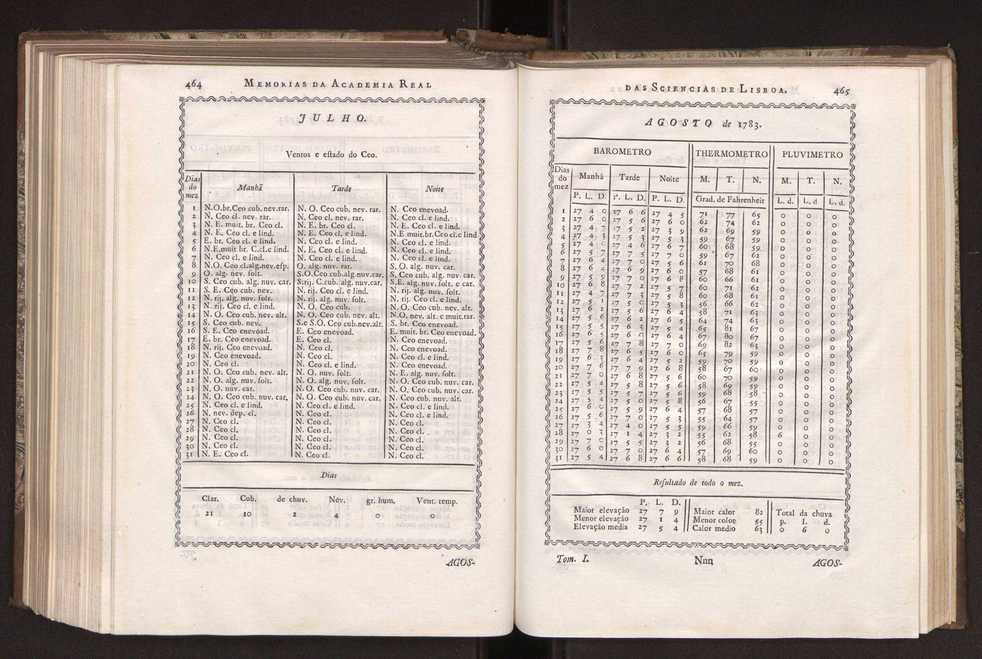 464 MEMORIAS DA ACADEMIA REAL
JULHO.
Ventos e eſtado do Ceo.
Dias do mez Manhã Tarde Noite
1 N.O.br.Ceo cub. nev.rar. N. O. Ceo cub. nev. rar. N. Ceo enevoad.
2 N. Ceo cl. nev. rar. N. Ceo cl. nev. rar. N. Ceo cl. e lind.
3 N. E. muit. br. Ceo cl. N. E. br. Ceo cl. N. E. Ceo cl. e lind.
4 N. E. Ceo cl. e lind. N. Ceo cl. e lind. N.E muit.br.Ceo cl.e lind
5 E. br. Ceo cl. e lind. N. E. Ceo cl. e lind. N. Ceo cl. e lind.
6 N.E.muit br. C.cl.e lind. N. Ceo cl. e lind. N. Ceo cl. e lind.
7 N. Ceo cl. e lind. O. alg. nuv. rar. N. Ceo cl. e lind.
8 N.O. Ceo cl.alg.nev.eſp. S.O. Ceo cub.alg.nuv.car. S. O. alg. nuv. car.
9 O. alg. nev. ſolt. S. Ceo cub. alg. nuv. car.
10 S. Ceo cub. alg. nuv. car. S.E. alg. nuv. ſolt. e car.
11 S. E. Ceo cub. nev. N. rij. Ceo cl. e lind. N. rij. alg. nuv. ſolt.
12 N. rij. alg. nuv. ſolt. N. rij. alg. nuv. ſolt. N. rij. Ceo cl. e lind.
13 N. rij. Ceo cl. e lind. N. O. Ceo cub. N. O. Ceo cub. nev. alt.
14 N. O. Ceo cub. nev. alt. N. O. Ceo cub. nev. alt. N.O. nev. alt. e muit.rar.
15 S. Ceo cub. nev. S.e S.O. Ceo cub.nev.alt. S. br. Ceo enevoad.
16 S. E. Ceo enevoad. E. Ceo enevoad. E. muit br. Ceo enevoad.
17 E. br. Ceo enevoad. E. Ceo cl. N. Ceo enevoad.
18 N. rij. Ceo enevoad. N. Ceo cl. N. Ceo cl.
19 N. Ceo enevoad. N. Ceo cl. N. Ceo cl. e lind.
20 N. Ceo cl. N. Ceo cl. e lind. N. Ceo cl. e lind.
21 N. O. Ceo cub. nev. alt. N. O. nuv. ſolt. N. E. alg. nuv. ſolt.
22 N. O. alg. nuv. ſolt. N. O. alg. nuv. ſolt. N. O. Ceo cub. nuv. car.
23 N. O. nuv. car. N. O. Ceo cub. nuv. car. N. O. Ceo cub. nuv. car.
24 N. O. Ceo cub. nuv. car. N. O. Ceo cub. nuv. car. N. Ceo cub. nuv. alt.
25 N. Ceo cl. e lind. N. Ceo cl. e lind. N. Ceo cl. e lind.
26 N. nev. deſp. cl. N. Ceo cl. N. Ceo cl. e lind.
27 N. Ceo cl. N. Ceo cl. N. Ceo cl.
28 N. Ceo cl. N. Ceo cl. N. Ceo cl.
29 N. Ceo cl. N. Ceo cl. N. Ceo cl.
30 N. Ceo cl. N. Ceo cl. N. Ceo cl.
31 N. E. Ceo cl. N. Ceo cl. N. Ceo cl.
Dias
Clar. Cob. de chuv. Nev. gr. hum. Vent. temp.
21 10 2 4 0 0
AGOS-
DAS SCIENCIAS DE LISBOA. 465
AGOSTO de 1783.
BAROMETRO THERMOMETRO PLUVIMETRO
Dias do mez Manhã Tarde Noite M. T. N. M. T. N.
P. L. D. P. L. D. P. L. D. Grad. de Fahrenheit L. d. L. d L. d.
1 27 4 0 27 6 6 27 4 5 71 77 65 0 0 0
2 27 6 0 27 5 6 27 6 0 62 74 62 0 0 0
3 27 4 27 5 2 27 3 9 62 69 59 0 0 0
4 27 4 27 5 3 27 5 3 59 67 57 0 0 0
5 27 4 27 4 6 27 6 7 60 68 59 0 0 0
6 27 5 27 7 5 27 7 0 59 67 62 0 0 0
7 27 6 4 27 7 0 27 5 6 61 70 68 0 0 0
8 27 6 27 6 9 27 6 0 57 68 61 0 0 0
9 27 6 27 7 0 27 6 8 60 66 61 0 0 0
10 27 6 8 27 7 2 27 5 7 60 71 61 0 0 0
11 27 4 27 7 3 27 5 8 60 68 61 0 0 0
12 27 6 27 5 0 27 5 3 56 66 61 0 0 0
13 27 6 2 27 5 6 27 6 4 58 71 63 0 0 0
14 27 5 6 27 6 2 27 6 5 64 74 63 0 0 0
15 27 5 27 6 3 27 5 4 65 81 67 0 0 0
16 27 5 27 6 0 27 6 4 67 80 67 0 0 0
17 27 5 27 7 8 27 7 0 69 82 63 0 0 0
18 27 6 27 6 5 27 6 0 65 79 59 0 0 0
19 27 6 27 6 4 27 5 2 59 70 59 0 0 0
20 27 7 27 7 9 27 6 8 58 67 60 0 0 0
21 27 7 0 27 6 8 27 5 6 60 70 59 0 0 0
22 27 5 27 5 5 27 5 6 58 69 59 0 0 0
23 27 5 27 5 7 27 5 0 59 68 58 0 0 0
24 27 5 27 5 0 27 5 8 56 67 55 0 0 0
25 27 6 27 5 9 27 6 4 57 68 57 0 0 0
26 27 5 6 27 7 0 27 5 3 55 64 57 0 0 0
27 27 3 4 27 4 0 27 5 5 59 66 59 0 0 0
28 27 0 3 27 1 4 27 3 2 55 62 58 6 0 0
29 27 7 0 27 5 5 27 3 2 56 68 55 0 0 0
30 27 6 0 27 7 0 27 6 4 57 69 60 0 0 0
31 27 5 4 27 6 8 27 6 6 58 68 59 0 0 0
Reſultado de todo o mez.
P. L. D.
Maior elevação 27 7 9 Maior calor 82 Total da chuva
Menor elevação 27 1 4 Menor color 55 p. l. d.
Elevação media 27 5 4 Calor medio 63 0 6 0
Tom. I. Nnn AGOS-